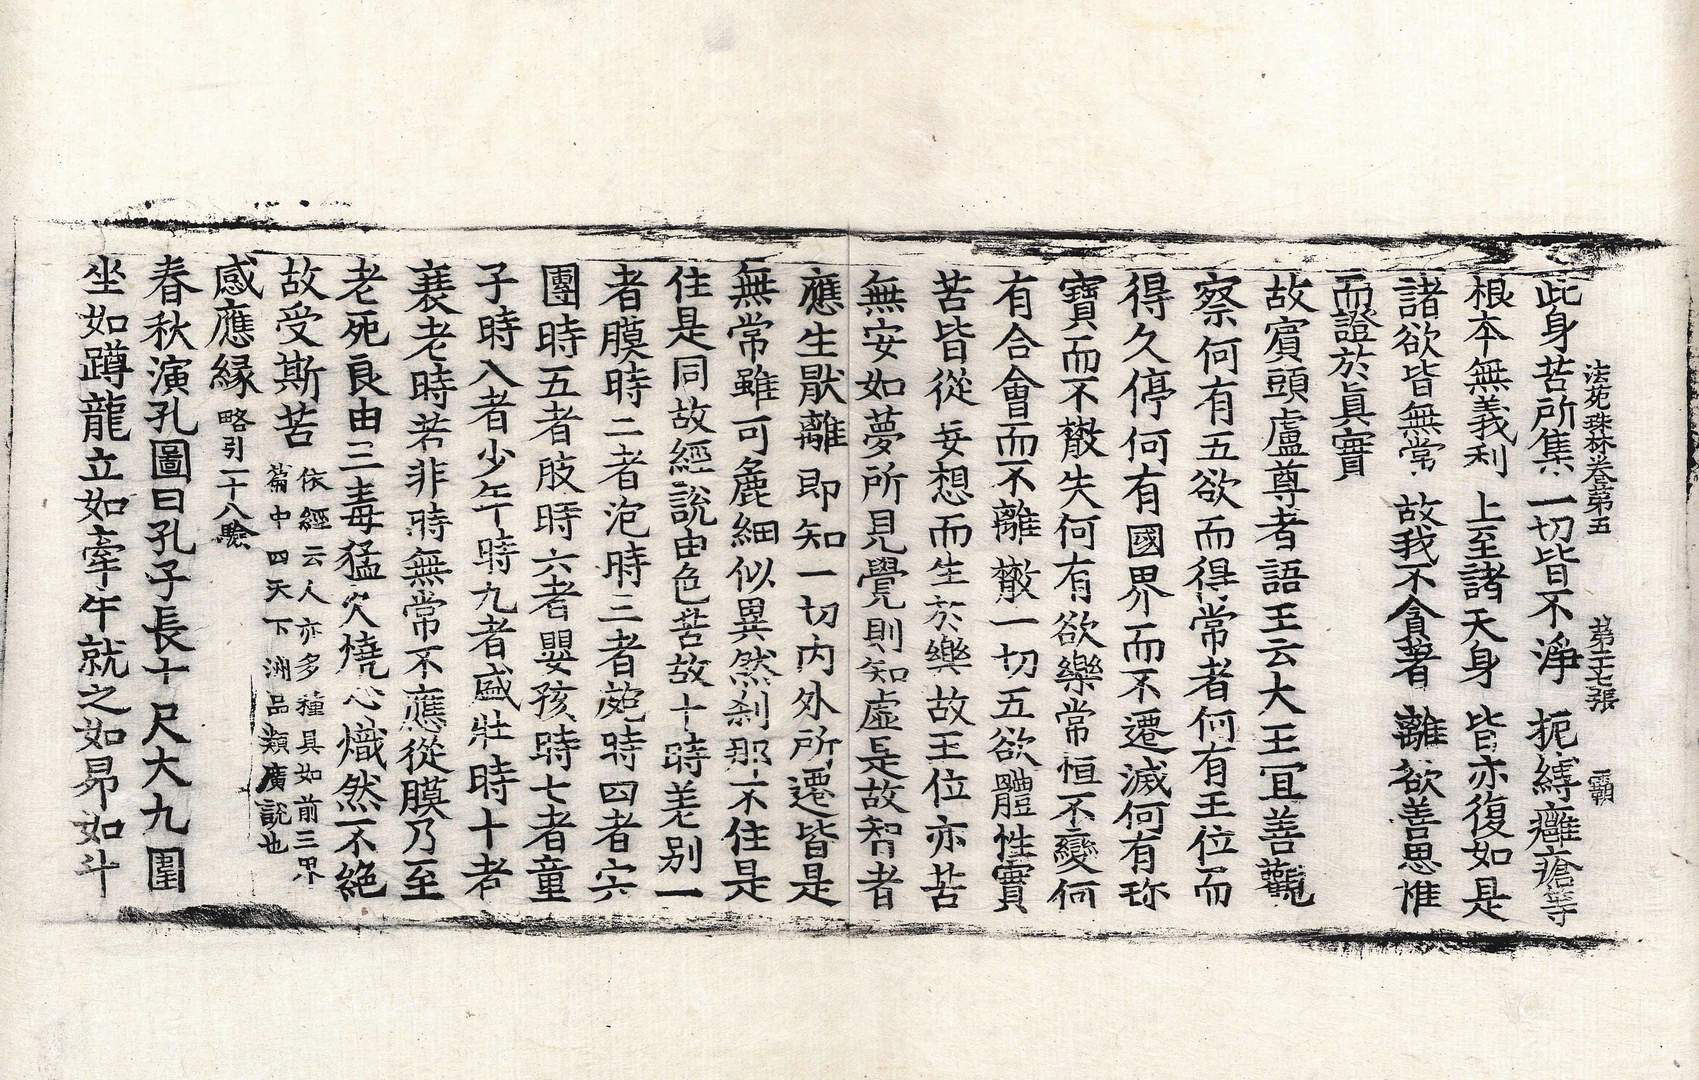 法苑珠林卷第五 第三十七張 霸
此身苦所集 一切皆不淨 扼縛癰瘡等
根本無義利 上至諸天身 皆亦復如是
諸欲皆無常 故我不貪著 離欲善思惟
而證於眞實
故賓頭盧尊者語王云大王宜善觀
察何有五欲而得常者何有王位而
得久停何有國界而不遷滅何有珎
寶而不散失何有欲樂常恒不變何
有合會而不離散一切五欲體性實
苦皆從妄想而生於樂故王位亦苦
無安如夢所見覺則知虛是故智者
應生猒離即知一切內外所遷皆是
無常雖可麁細似異然刹那不住是
住是同故經說由色苦故十時差別一
者膜時二者泡時三者皰時四者宍
團時五者肢時六者嬰孩時七者童
子時八者少年時九者盛壯時十者
衰老時若非時無常不應從膜乃至
老死良由三毒猛火燒心熾然不絶
故受斯苦 依經云人亦多種具如前三界
篇中四天下洲品類廣說也
感應緣 略引一十八驗
春秋演孔圖曰孔子長十尺大九圍
坐如蹲龍立如牽牛就之如昴如斗